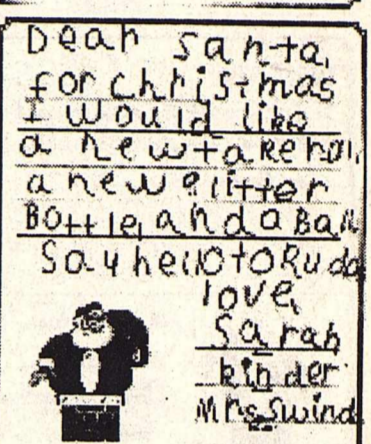 Dear Santa,
for christmas
I would like
a new
a new glitter
Bottle, and a Ball
Say hello to Rudo
love,
Sarah
kinder
Mrs. Swind